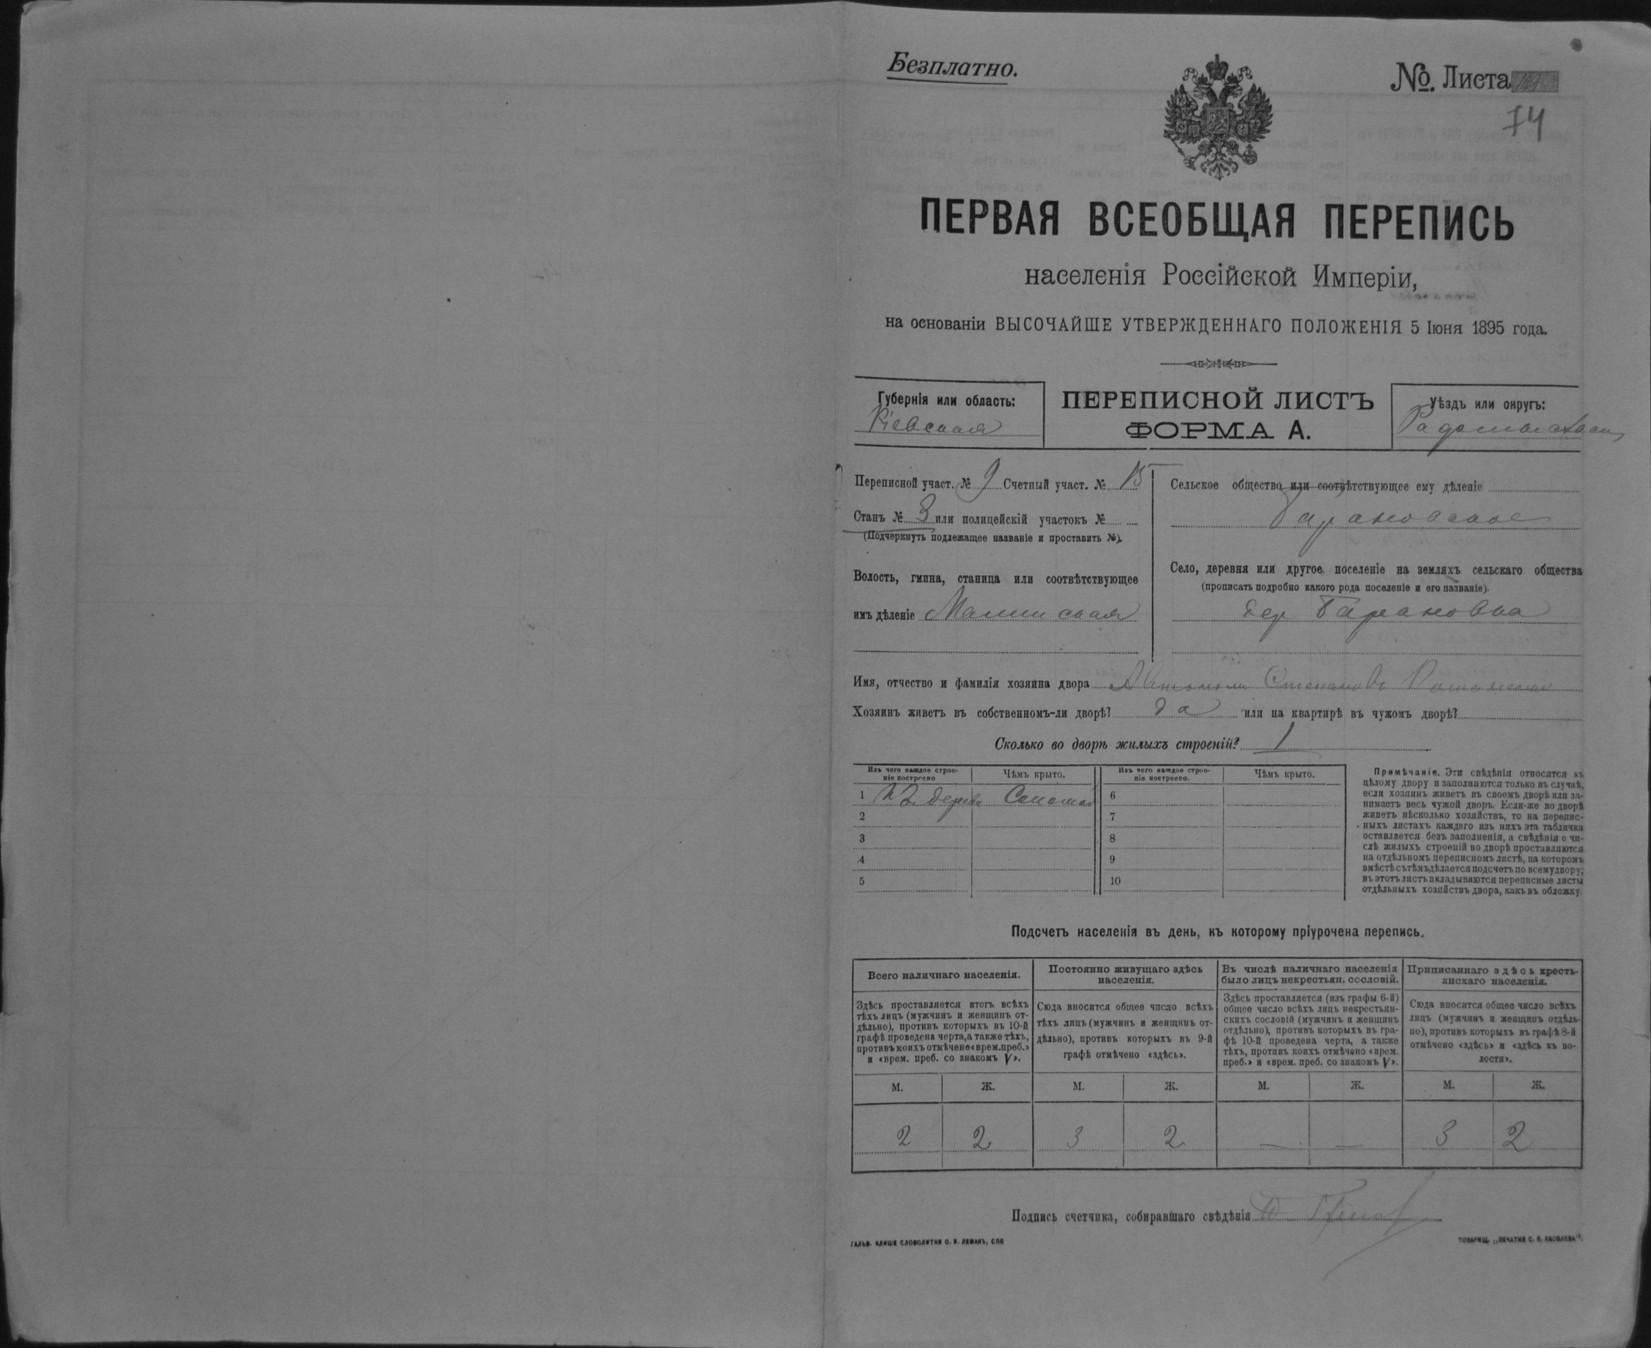 Безплатно.
№. Листа
74
ПЕРВАЯ ВСЕОБЩАЯ ПЕРЕПИСЬ
населенія Россійской Имперіи,
на основаніи ВЫСОЧАЙШЕ УТВЕРЖДЕННАГО ПОЛОЖЕНІЯ 5 Іюня 1895 года.
Губернія или область:
Кіевская
ПЕРЕПИСНОЙ ЛИСТЪ
ФОРМА А.
Уѣздъ или округъ:
Переписной участ. № 9 Счетный участ. № 15
Станъ № 3 или полицейскій участокъ №
(Подчеркнуть подлежащее названіе и проставить №).
Волость, гмина, станица или соотвѣтствующее
имъ дѣленіе Малинская
Сельское общество или соотвѣтствующее ему дѣленіе
Барановское
Село, деревня или другое поселеніе на земляхъ сельскаго общества
(прописать подробно какого рода поселеніе и его названіе).
дер Барановка
Имя, отчество и фамилія хозяина двора Степановъ
Хозяинъ живетъ въ собственномъ-ли дворѣ? да или на квартирѣ въ чужомъ дворѣ?
Сколько во дворѣ жилыхъ строеній? 1
Изъ чего каждое строе-
ніе построено
Чѣмъ крыто.
Изъ чего каждое строе-
ніе построено.
Чѣмъ крыто.
1 изъ дерева Соломой 6
2 7
3 8
4 9
5 10
Примѣчаніе. Эти свѣдѣнія относятся къ
цѣлому двору и заполняются только въ случаѣ,
если хозяинъ живетъ въ своемъ дворѣ или за-
нимаетъ весь чужой дворъ. Если-же во дворѣ
живетъ нѣсколько хозяйствъ, то на перепис-
ныхъ листахъ каждаго изъ нихъ эта табличка
оставляется безъ заполненія, а свѣдѣнія о чи-
слѣ жилыхъ строеній во дворѣ проставляются
на отдѣльномъ переписномъ листѣ, на которомъ
вмѣстѣ съ тѣмъ дѣлается подсчетъ по всему двору;
въ этотъ листъ вкладываются переписные листы
отдѣльныхъ хозяйствъ двора, какъ въ обложку.
Подсчетъ населенія въ день, къ которому пріурочена перепись.
Всего наличнаго населенія.
Здѣсь проставляется итогъ всѣхъ
тѣхъ лицъ (мужчинъ и женщинъ от-
дѣльно), противъ которыхъ въ 10-й
графѣ проведена черта, а также тѣхъ,
противъ коихъ отмѣчено «врем. преб.»
и «врем. преб. со знакомъ V».
Постоянно живущаго здѣсь
населенія.
Сюда вносится общее число всѣхъ
тѣхъ лицъ (мужчинъ и женщинъ от-
дѣльно), противъ которыхъ въ 9-й
графѣ отмѣчено «здѣсь».
Въ числѣ наличнаго населенія
было лицъ некрестьян. сословій.
Здѣсь проставляется (изъ графы 6-й)
общее число всѣхъ лицъ некрестьян-
скихъ сословій (мужчинъ и женщинъ
отдѣльно), противъ которыхъ въ гра-
фѣ 10-й проведена черта, а также
тѣхъ, противъ коихъ отмѣчено «врем.
преб.» и «врем. преб. со знакомъ V».
Приписаннаго здѣсь кресть-
янскаго населенія.
Сюда вносится общее число всѣхъ
лицъ (мужчинъ и женщинъ отдѣль-
но), противъ которыхъ въ графѣ 8-й
отмѣчено «здѣсь» и «здѣсь въ во-
лости».
М. Ж. М. Ж. М. Ж. М. Ж.
2 2 3 2 — — 3 2
Подпись счетчика, собиравшаго свѣдѣнія
ГАЛЬВ. КЛИШЕ СЛОВОЛИТНИ О. И. ЛЕМАНЪ, СПБ
ТОВАРИЩ. „ПЕЧАТНЯ С. П. ЯКОВЛЕВА“.